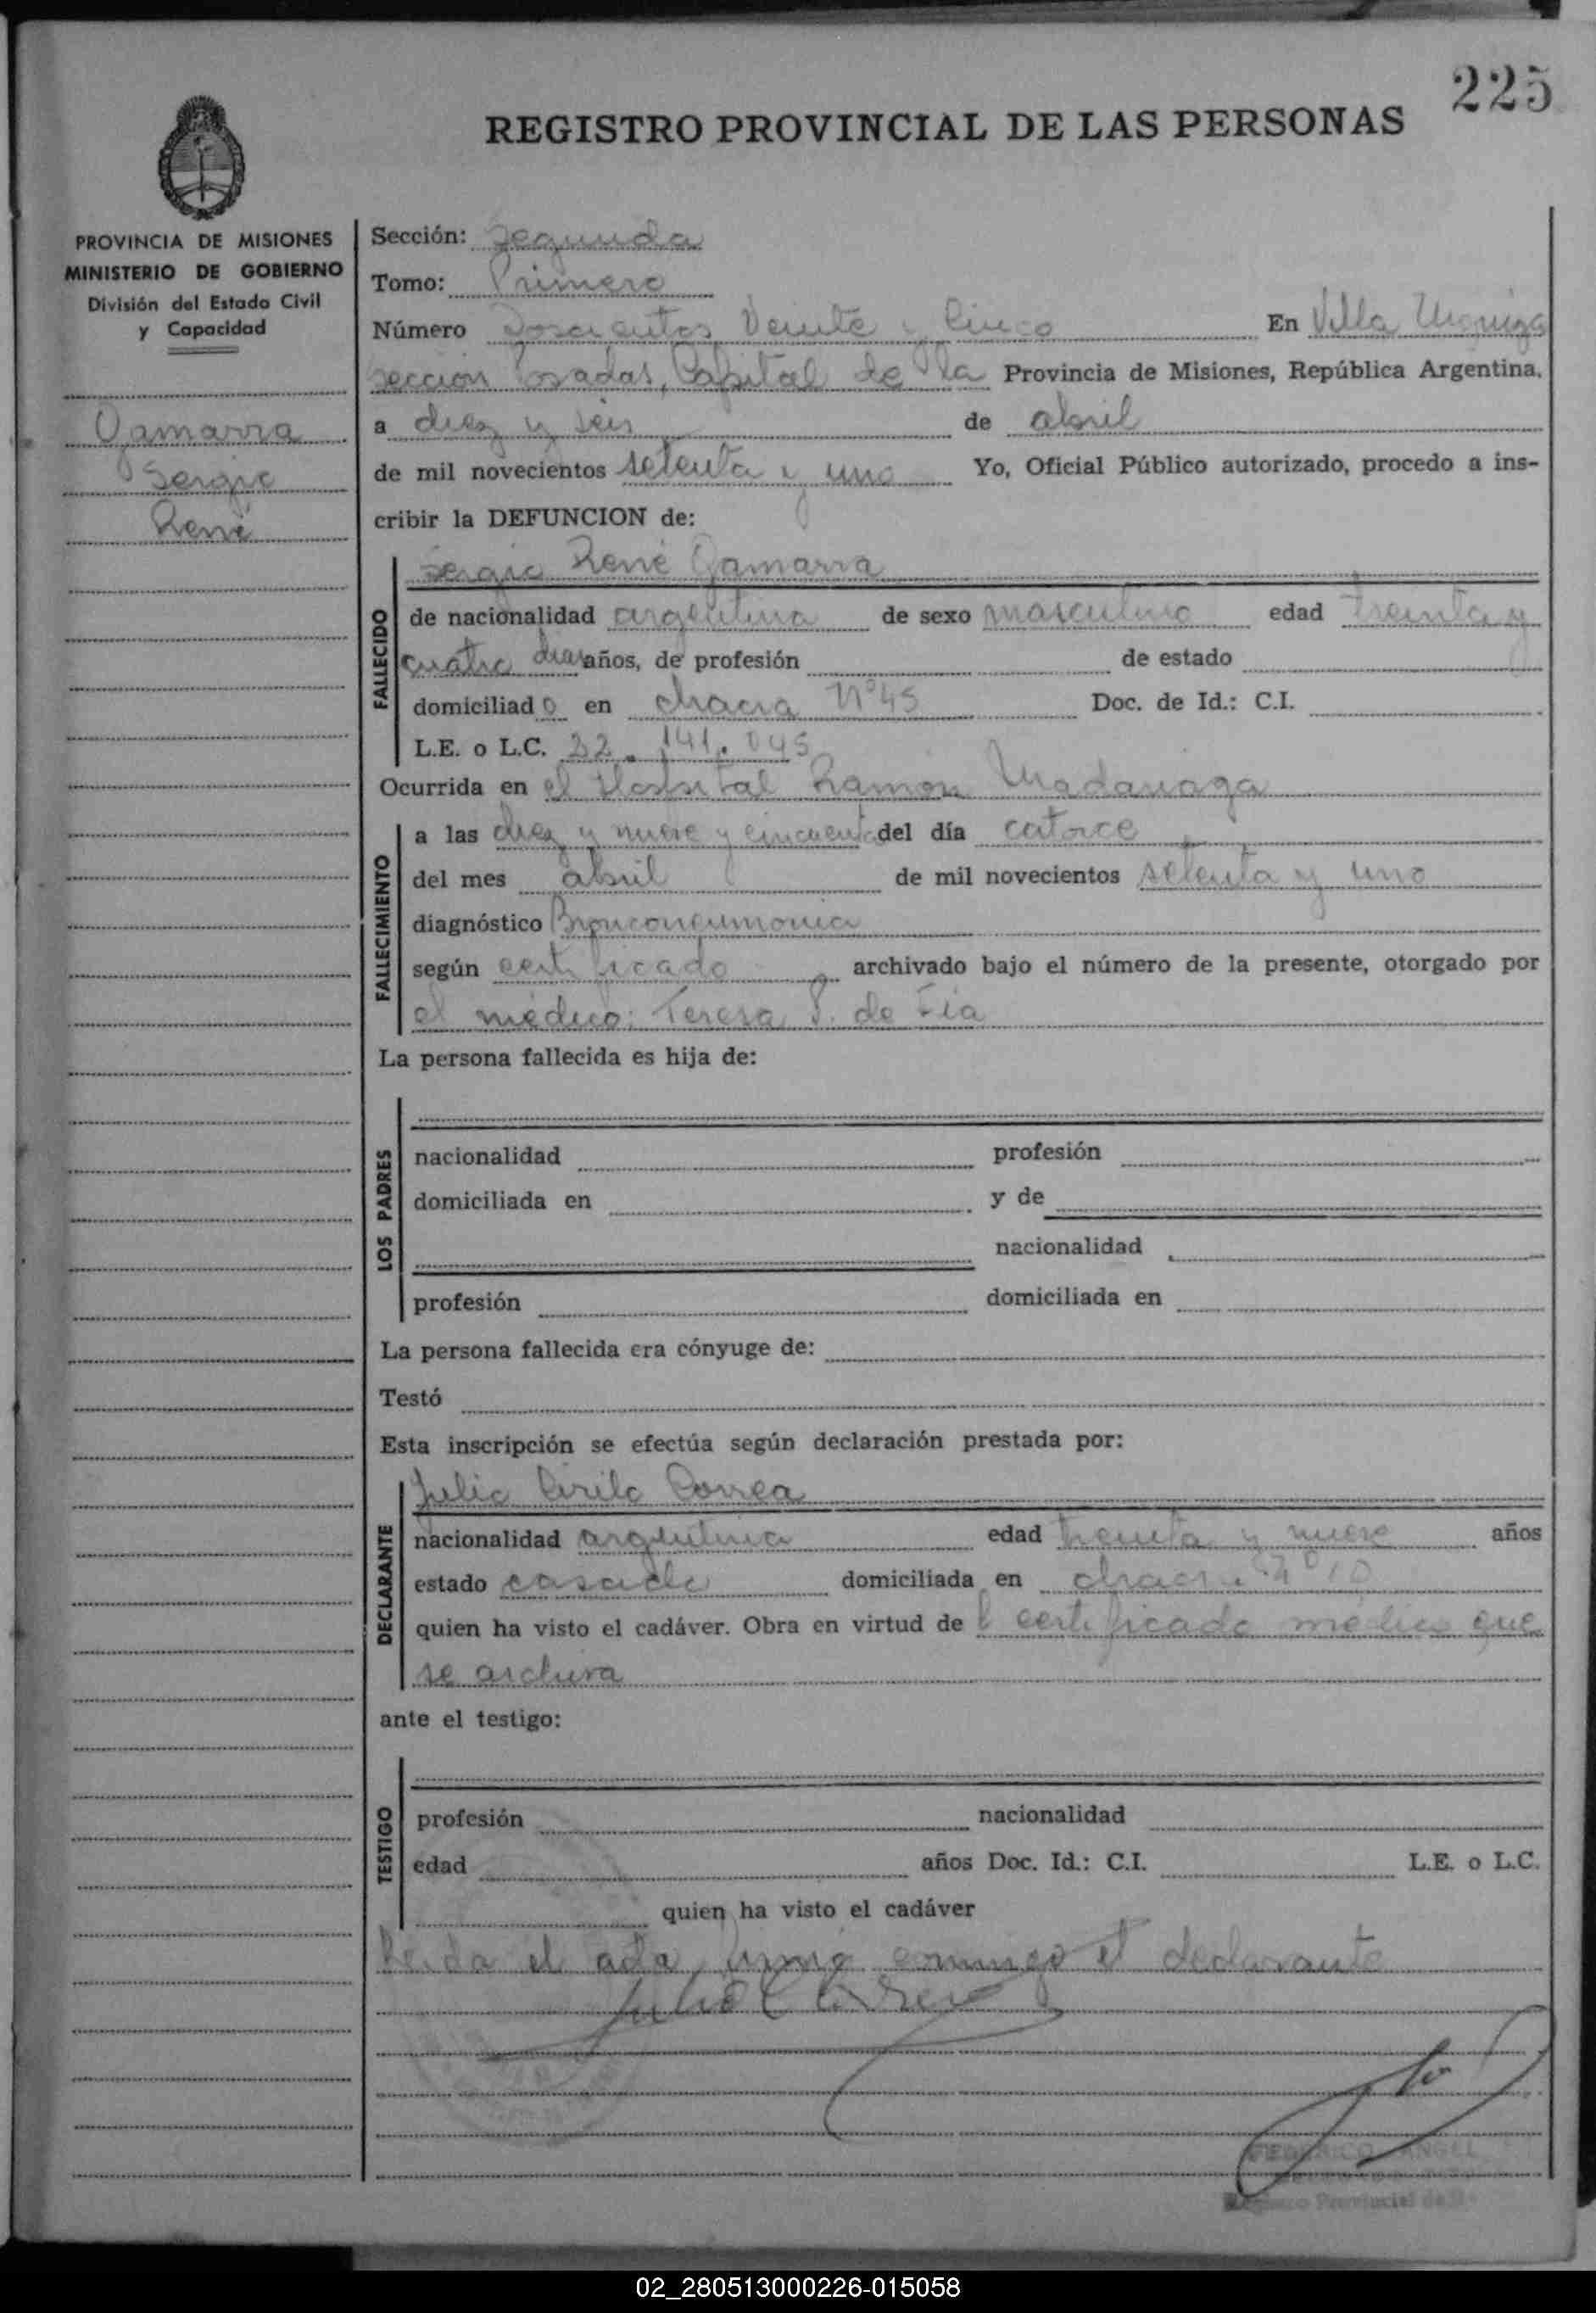 225
REGISTRO PROVINCIAL DE LAS PERSONAS
PROVINCIA DE MISIONES
MINISTERIO DE GOBIERNO
División del Estado Civil
y Capacidad
Gamarra
Sergio
René
Sección: Segunda
Tomo: Primero
Número Doscientos Veinte y Cinco En Villa Urquiza
sección Posadas, Capital de la Provincia de Misiones, República Argentina,
a diez y seis de abril
de mil novecientos setenta y uno Yo, Oficial Público autorizado, procedo a ins-
cribir la DEFUNCION de:
FALLECIDO
Sergio René Gamarra
de nacionalidad argentina de sexo masculino edad treinta y
cuatro dias años, de profesión de estado
domiciliado en chacra Nº 45 Doc. de Id.: C.I.
L.E. o L.C. 22.141.045
Ocurrida en el Hospital Ramón Madariaga
FALLECIMIENTO
a las diez y nueve y cincuenta del día catorce
del mes abril de mil novecientos setenta y uno
diagnóstico Bronconeumonia
según certificado archivado bajo el número de la presente, otorgado por
el médico: Teresa de
La persona fallecida es hija de:
LOS PADRES
nacionalidad profesión
domiciliada en y de
nacionalidad
profesión domiciliada en
La persona fallecida era cónyuge de:
Testó
Esta inscripción se efectúa según declaración prestada por:
DECLARANTE
Julio Cirilo Correa
nacionalidad argentina edad treinta y nueve años
estado casado domiciliada en chacra Nº 10
quien ha visto el cadáver. Obra en virtud del certificado médico que
se archiva
ante el testigo:
TESTIGO
profesión nacionalidad
edad años Doc. Id.: C.I. L.E. o L.C.
quien ha visto el cadáver
Leida el acta, firmó conmigo el declarante
Julio C Correa
02_280513000226-015058